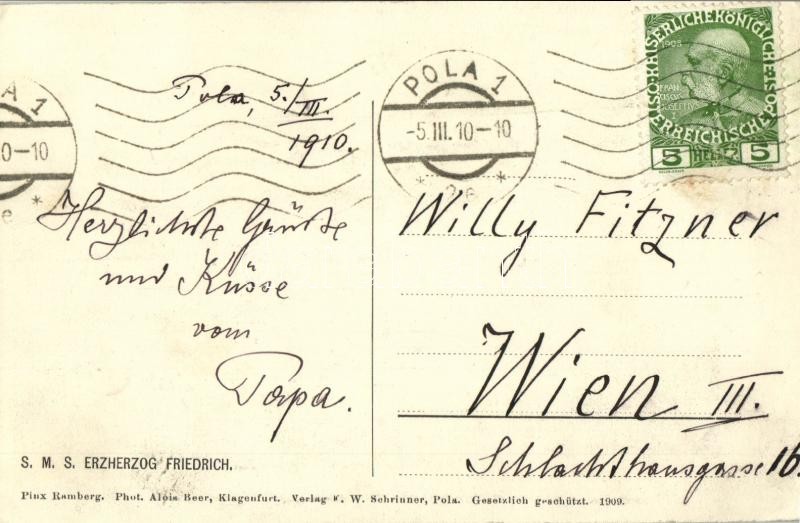 A 1
0-10
2e *
Pola, 5./III
1910.
Herzlichste Grüsse
und Küsse
vom
Papa.
S. M. S. ERZHERZOG FRIEDRICH.
POLA 1
-5.III.10-10
* 2e *
KAISERLICHE KÖNIGLICHE
ÖSTERREICHISCHE
1908
FRAN
CISCVS
IOSEPHVS
5 HELLER 5
Willy Fitzner
Wien III.
Schlachthausgasse 16.
Pinx Ramberg. Phot. Alois Beer, Klagenfurt. Verlag F. W. Schrinner, Pola. Gesetzlich geschützt. 1909.